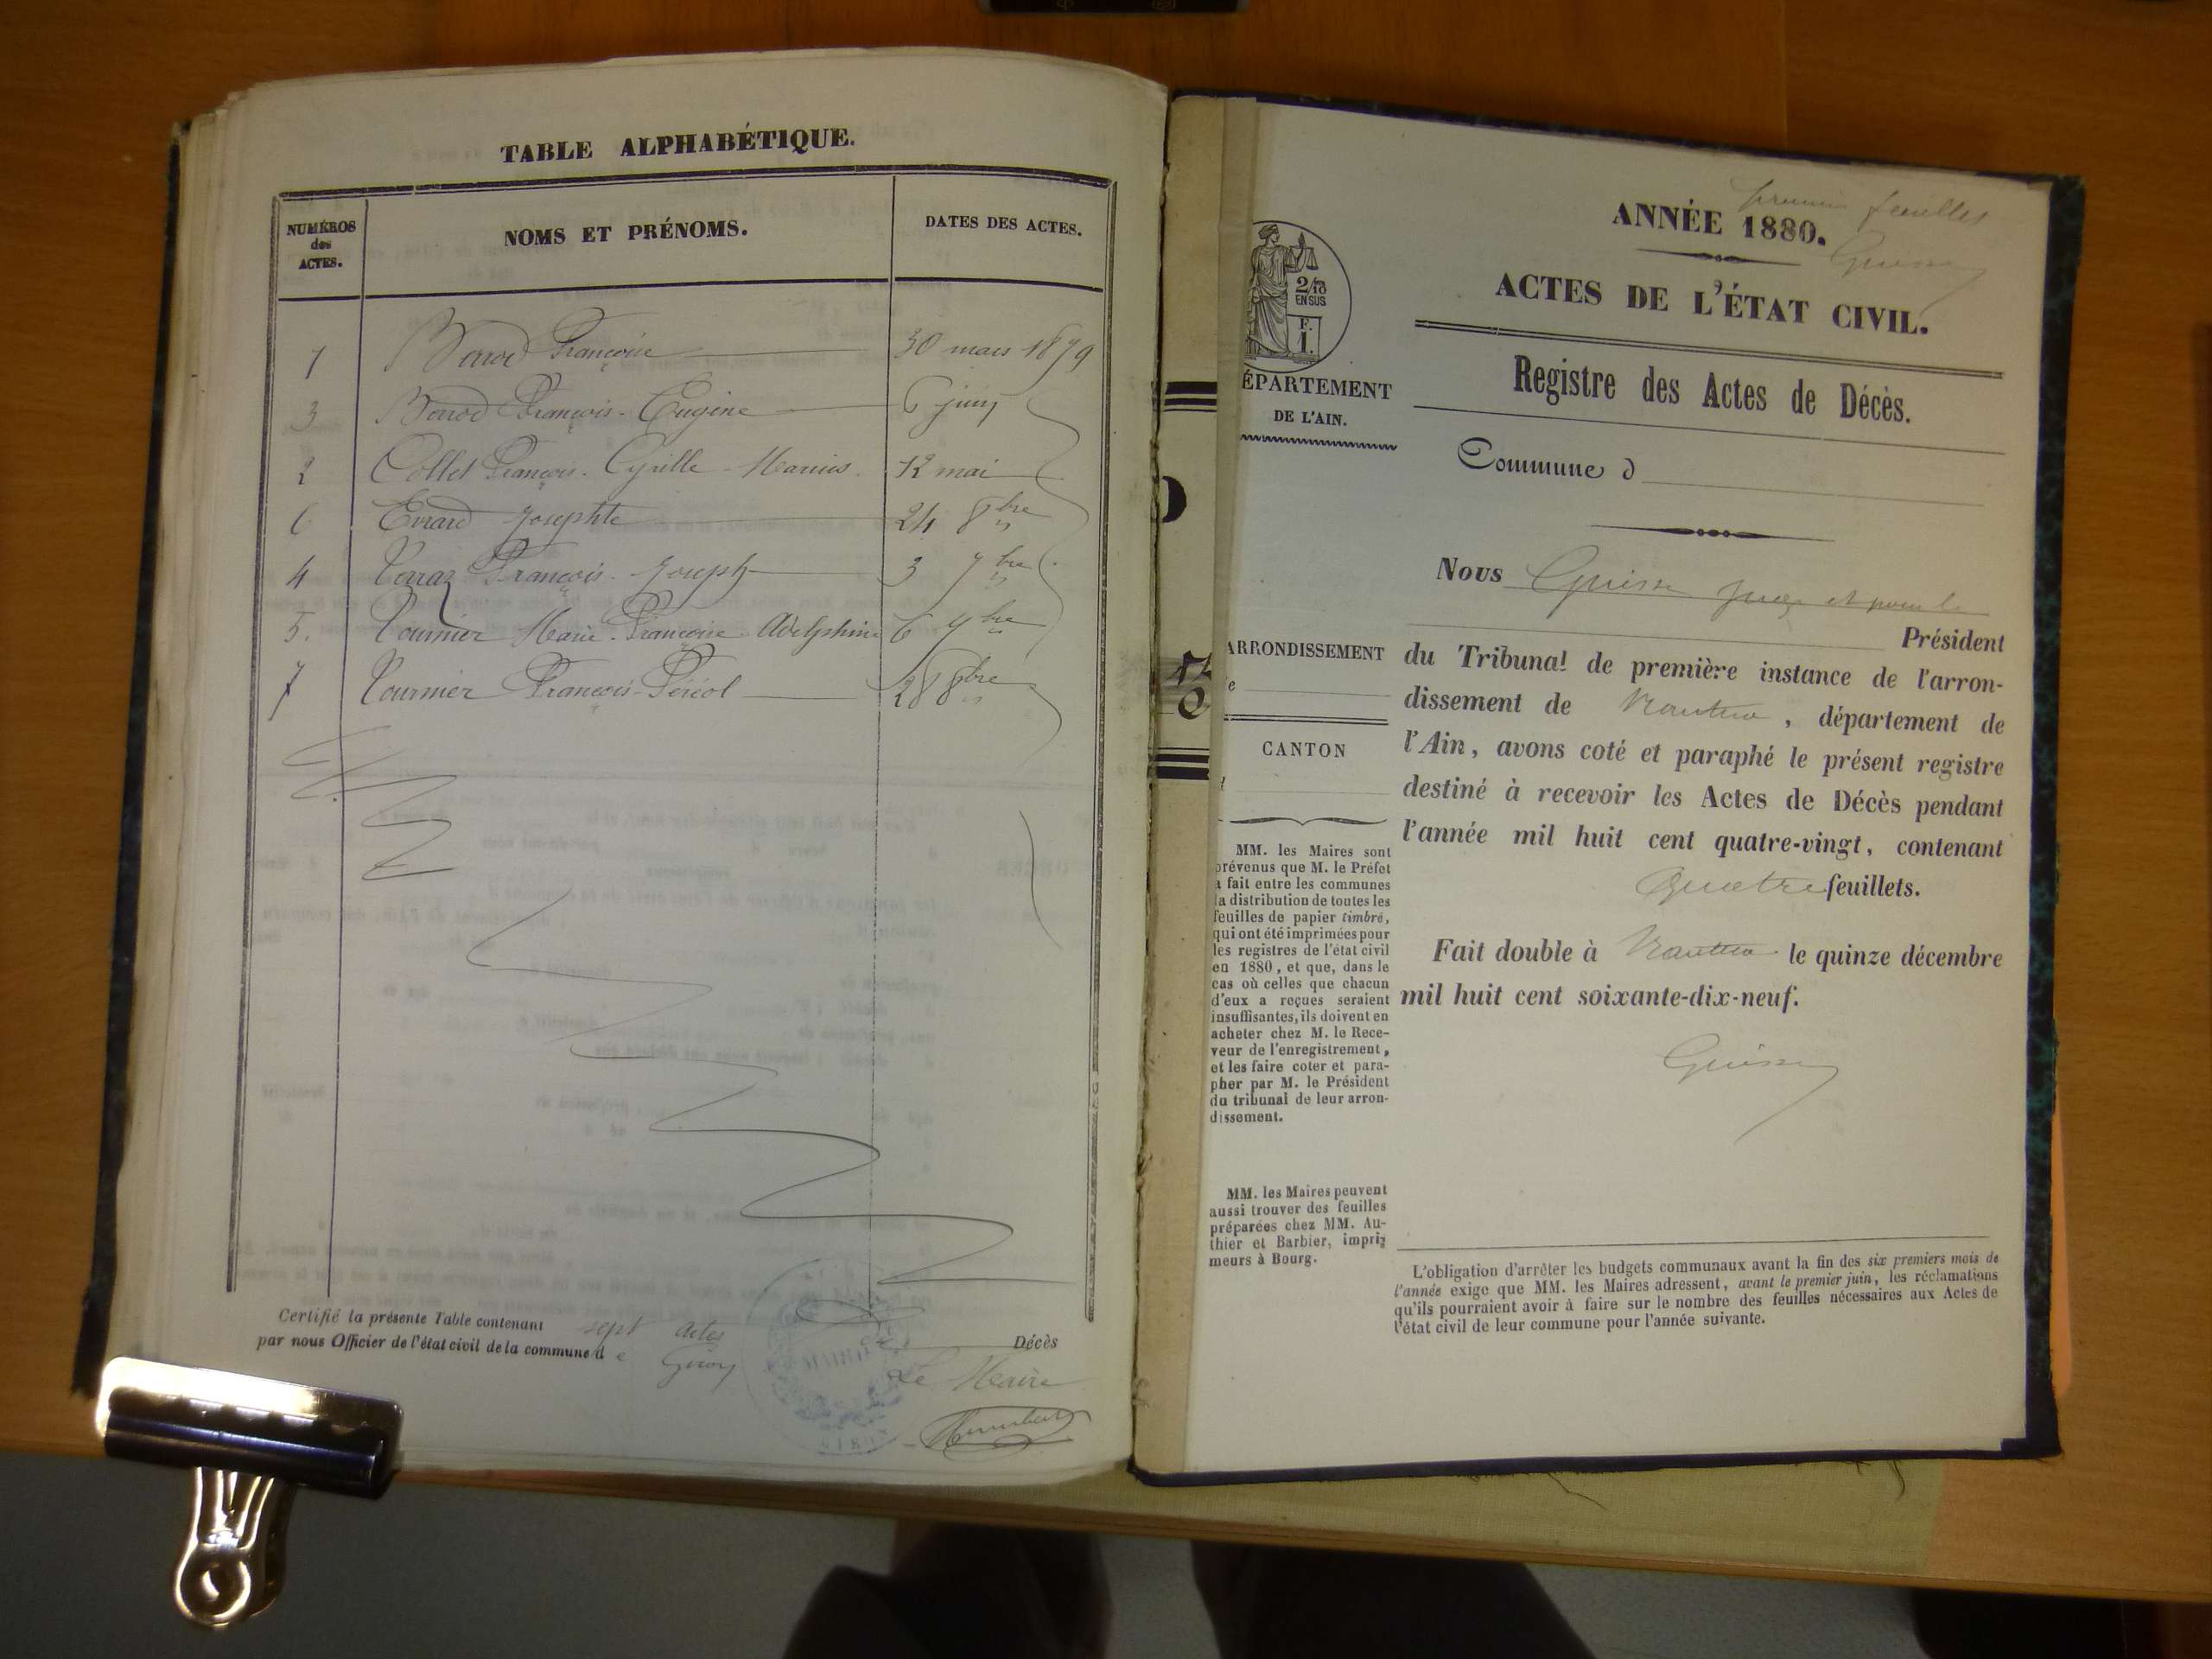 TABLE ALPHABÉTIQUE.
NUMÉROS des ACTES.
NOMS ET PRÉNOMS.
DATES DES ACTES.
1 Berrod Françoise 30 mars 1879
3 Berrod François-Eugène 6 juin
2 Collet François-Cyrille-Marius 12 mai
6 Evrard Josephte 24 8bre
4 François-Joseph 3 7bre
5. Tournier Marie-Françoise Adelphine 6
7 Tournier François-Féréol 28 8bre
Certifié la présente Table contenant sept actes Décès
par nous Officier de l'état civil de la commune de Giron
Le Maire
premier feuillet
ANNÉE 1880.
ACTES DE L'ÉTAT CIVIL.
2/10
EN SUS
F.
1.
ÉPARTEMENT
DE L'AIN.
Registre des Actes de Décès.
Commune d
Nous juge et pour le
Président
du Tribunal de première instance de l'arron-
dissement de Nantua, département de
l'Ain, avons coté et paraphé le présent registre
destiné à recevoir les Actes de Décès pendant
l'année mil huit cent quatre-vingt, contenant
Quatre feuillets.
Fait double à Nantua le quinze décembre
mil huit cent soixante-dix-neuf.
ARRONDISSEMENT
e
CANTON
MM. les Maires sont
prévenus que M. le Préfet
a fait entre les communes
la distribution de toutes les
feuilles de papier timbré,
qui ont été imprimées pour
les registres de l'état civil
en 1880, et que, dans le
cas où celles que chacun
d'eux a reçues seraient
insuffisantes, ils doivent en
acheter chez M. le Rece-
veur de l'enregistrement,
et les faire coter et para-
pher par M. le Président
du tribunal de leur arron-
dissement.
MM. les Maires peuvent
aussi trouver des feuilles
préparées chez MM. Au-
thier et Barbier, impri-
meurs à Bourg.
L'obligation d'arrêter les budgets communaux avant la fin des six premiers mois de
l'année exige que MM. les Maires adressent, avant le premier juin, les réclamations
qu'ils pourraient avoir à faire sur le nombre des feuilles nécessaires aux Actes de
l'état civil de leur commune pour l'année suivante.